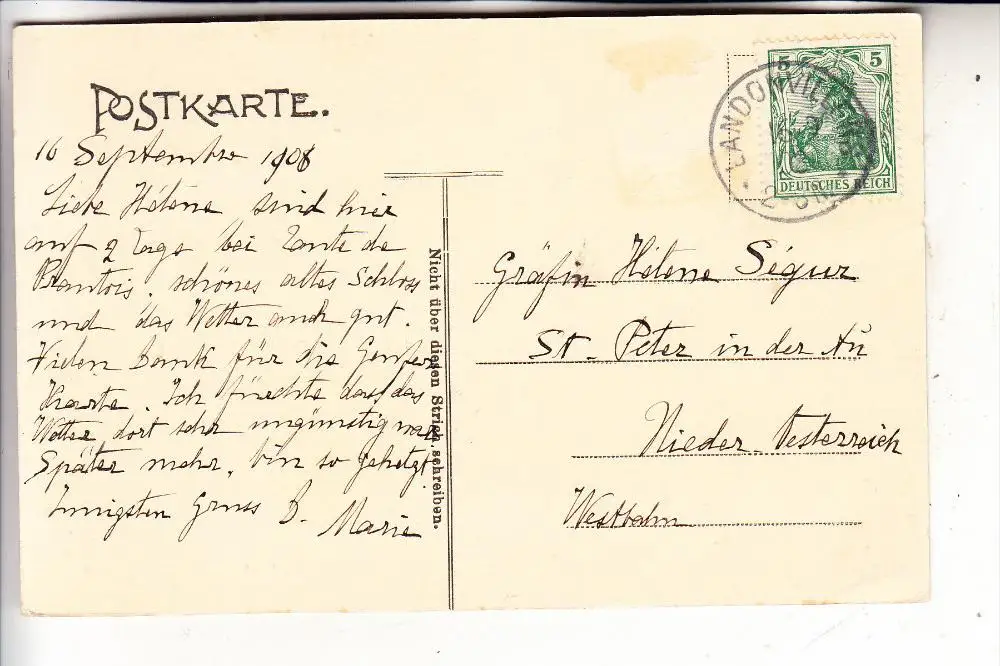 POSTKARTE.
16 Septembre 1908
Liebe Hélène sind hier
auf 2 Tage bei Tante de
schönes altes Schloss
und das Wetter auch gut.
Vielen Dank für die Genfer
Karte. Ich fürchte dass das
Wetter dort sehr ungünstig war
Später mehr, bin so gehetzt
Innigsten Gruss B. Marie
Nicht über diesen Strich schreiben.
5 5
DEUTSCHES REICH
LANDONVILLERS
Gräfin Hélène Ségur
St. Peter in der Au
Nieder. Oesterreich
Westbahn